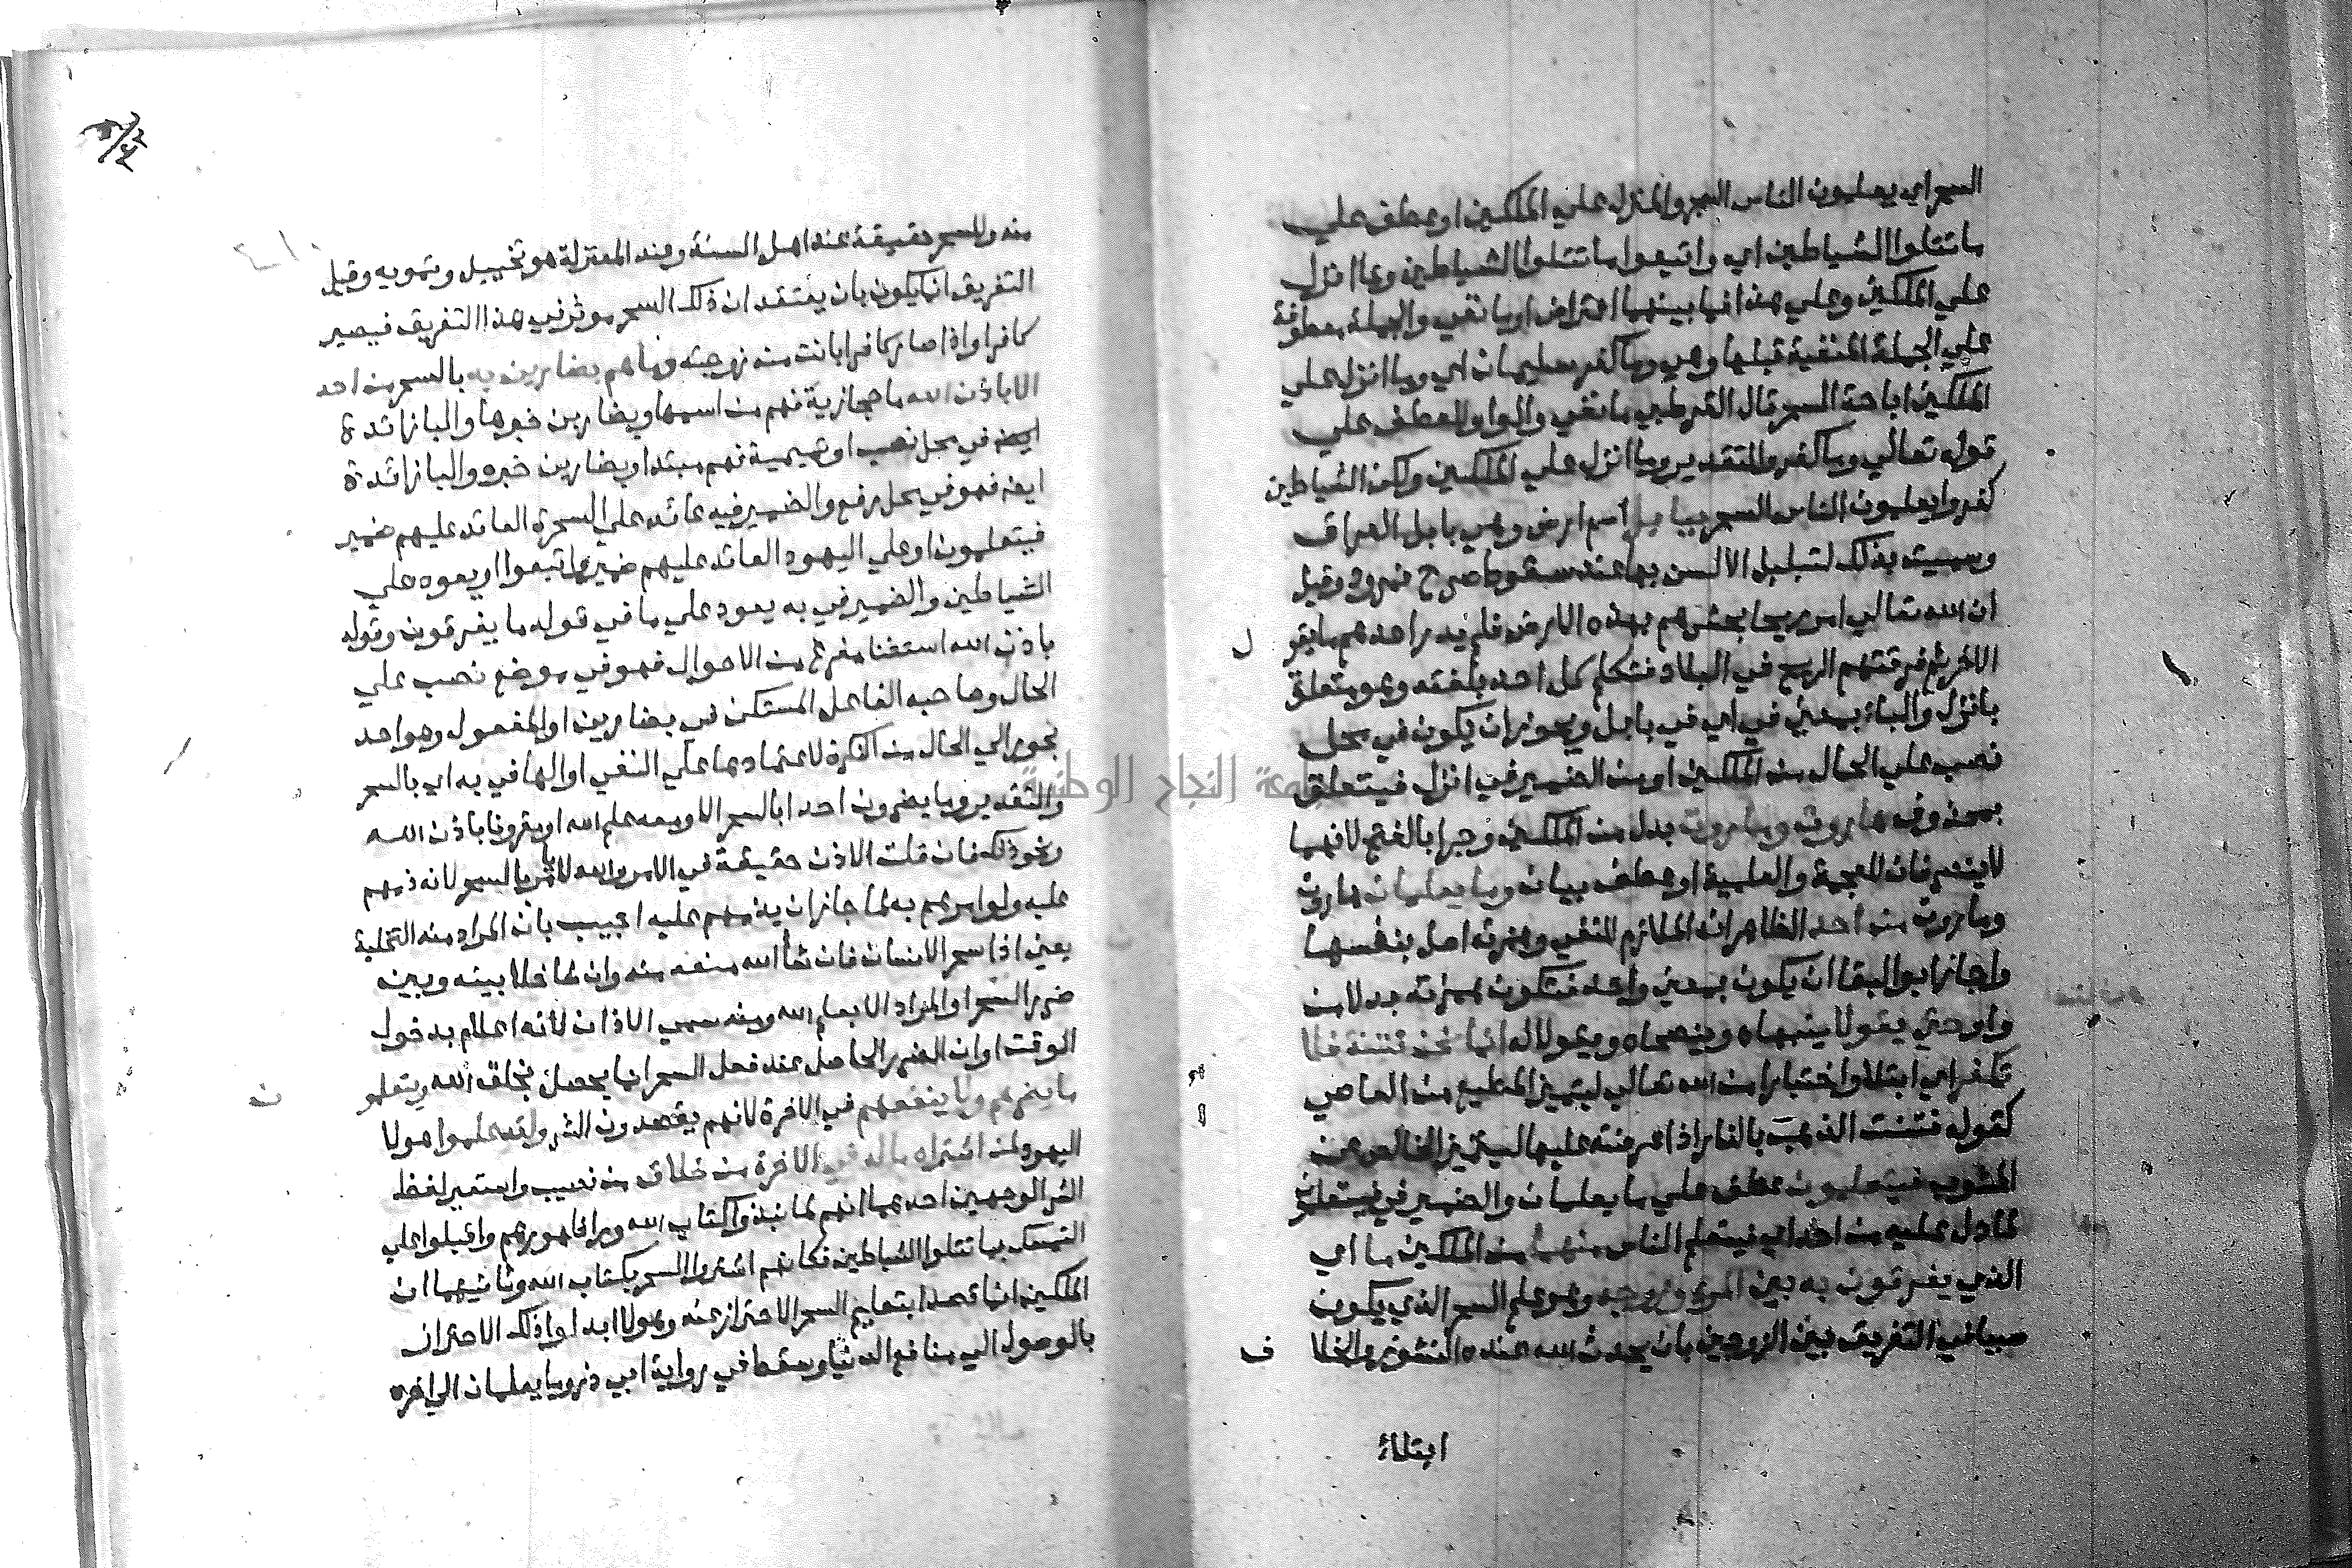 السحر اي يعلمون الناس السحر والمنزل علي الملكين او عطف علي
ما تتلوا الشياطين اي واتبعوا ما تتلوا الشياطين وما انزل
علي الملكين وعلي هذا فما بينهما اعتراض او ما نفي والجملة معطوفة
علي الجملة المنفية قبلها وهي وما كفر سليمان اي وما انزل علي
الملكين اباحة السحر قال القرطبي ما نفي والواو للعطف علي
قوله تعالي وما كفر والتقدير وما انزل علي الملكين ولكن الشياطين
كفروا يعلمون الناس السحر ببابل اسم ارض وهي بابل العراق
وسميت بذلك لتبلبل الالسن بها عند سقوط صرح نمرود وقيل
ان الله تعالي امر ريحا بحشرهم بهذه الارض فلم يدر احدهم ما يقول
الاخر ثم فرقتهم الريح في البلاد فتكلم كل احد بلغته وهو متعلق
بانزل والباء بمعني في اي في بابل ويجوز ان يكون في محل
نصب علي الحال من الملكين او من الضمير في انزل فيتعلق
بمحذوف هاروت وماروت بدل من الملكين وجرا بالفتح لانهما
لا ينصرفان للعجمة والعلمية او عطف بيان وما يعلمان هاروت
وماروت من احد الظاهر انه الملازم للنفي وهمزته اصل بنفسها
واجاز ابو البقا ان يكون بمعني واحد فتكون همزته بدلا من
واو حتي يقولا ينبهاه وينصحاه ويقولا له انما نحن فتنة فلا
تكفر اي ابتلا واختبار من الله تعالي ليتميز المطيع من العاصي
كقوله فتنت الذهب بالنار اذا عرضته عليها ليتميز الخالص من
المشوب فيتعلمون عطف علي ما يعلمان والضمير في فيتعلمون
لما دل عليه من احد اي فيتعلم الناس منهما من الملكين ما اي
الذي يفرقون به بين المرء وزوجه وهو علم السحر الذي يكون
سببا في التفريق بين الزوجين بان يحدث الله عنده النشوز والخلاف
ابتلاء
منه وللسحر حقيقة عند اهل السنة وعند المعتزلة هو تخييل وتمويه وقيل
التفريق انما يكون بان يعتقد ان ذلك السحر موثر في هذا التفريق فيصير
كافرا واذا صار كافرا بانت منه زوجته وما هم بضارين به بالسحر من احد
الا باذن الله ما حجازية فهم من اسمها وبضارين خبرها والبا زائدة
فهو في محل نصب او تميمية فهم مبتدا وبضارين خبره والبا زائدة
ايضه فهو في محل رفع والضمير فيه عائد علي السحرة العائد عليهم ضمير
فيتعلمون او علي اليهود العائد عليهم ضمير واتبعوا او يعود علي
الشياطين والضمير في به يعود علي ما في قوله ما يفرقون وقوله
باذن الله استثنا مفرغ من الاحوال فهو في موضع نصب علي
الحال وصاحبه الفاعل المستكن في بضارين او المفعول وهو احد
لجواز الحال من النكرة لاعتمادها علي النفي او الها في به اي بالسحر
والتقدير وما يضرون احدا بالسحر الا ومعه علم الله او مقرونا باذن الله
ونحو ذلك فان قلت الاذن حقيقة في الامر والله لا يامر بالسحر لانه ذمهم
عليه ولو امرهم به لما جاز ان يذمهم عليه اجيب بان المراد منه التخلية
يعني اذا سحر الانسان فان شأ الله منعه منه وان شا خلا بينه وبين
ضرر السحر او المراد الا بعلم الله ومنه سمي الاذان لانه اعلام بدخول
الوقت او ان الضرر الحاصل عند فعل السحر انما يحصل بخلق الله ويتعلمون
ما يضرهم ولا ينفعهم في الاخرة لانهم يقصدون الشر ولقد علموا هولا
اليهود لمن اشتراه ماله في الاخرة من خلاق من نصيب واستعير لفظ
الشرا لوجهين احدهما انهم لما نبذوا كتاب الله وراء ظهورهم واقبلوا علي
التمسك بما تتلوا الشياطين فكانهم اشتروا السحر بكتاب الله وثانيهما ان
الملكين انما قصدا بتعليم السحر الاحتراز عنه وهولا ابدلوا ذلك الاحتراز
بالوصول الي منافع الدنيا وسقط في رواية ابي ذر وما يعلمان الي اخره
جامعة النجاح الوطنية